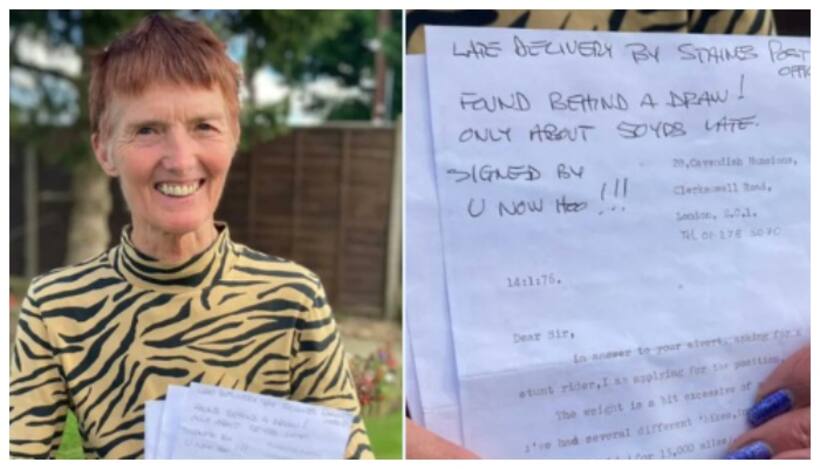 LATE DELIVERY BY STAINES POST
OFFIC
FOUND BEHIND A DRAW!
ONLY ABOUT 50YDS LATE.
SIGNED BY
U NOW HOO !!!
Clerkenwell Road,
London, E.C.1.
Tel 01 278 5070
14:1:76.
Dear Sir,
in answer to your advert, asking for a
stunt rider,I am applying for the position.
The weight is a bit excessive of
i've had several different 'bikes,
for 15,000 miles
LATE DELIVERY BY STAINES
FOUND BEHIND A DRAW!
U NOW HOO !!!